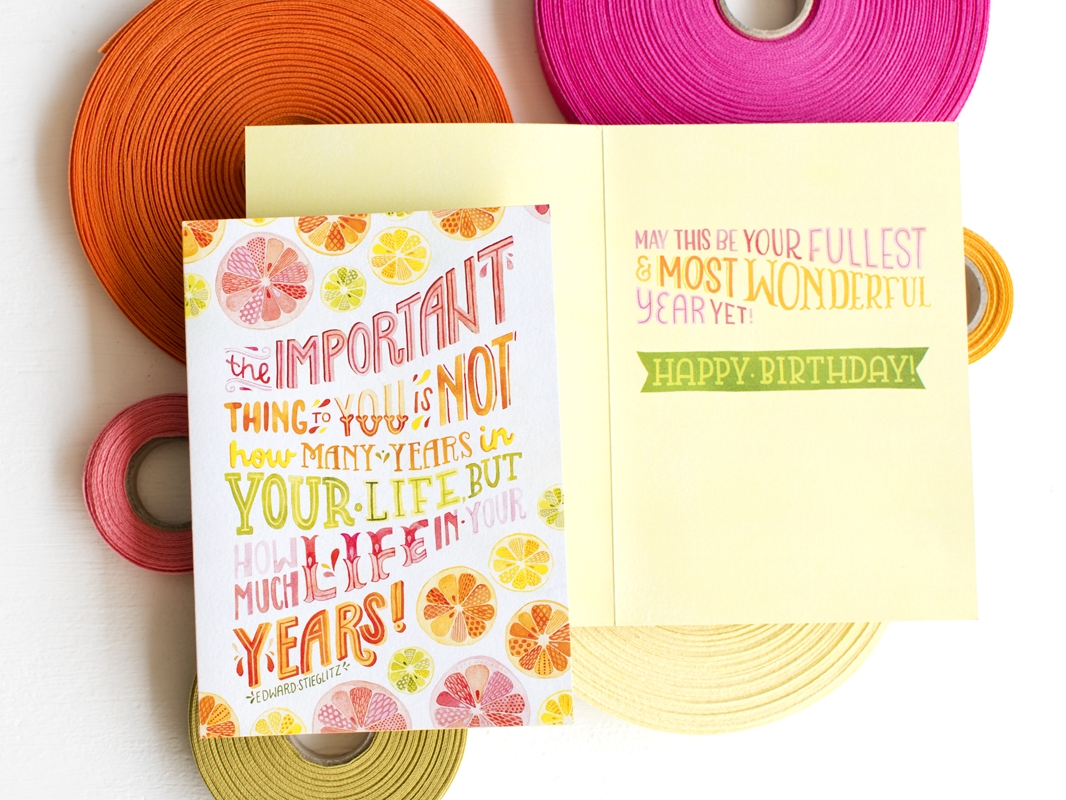 the IMPORTANT
THING TO YOU is NOT
how MANY YEARS in
YOUR·LIFE, BUT
HOW MUCH LIFE IN·YOUR
YEARS!
EDWARD·STIEGLITZ
MAY THIS BE YOUR FULLEST
& MOST WONDERFUL
YEAR YET!
HAPPY·BIRTHDAY!